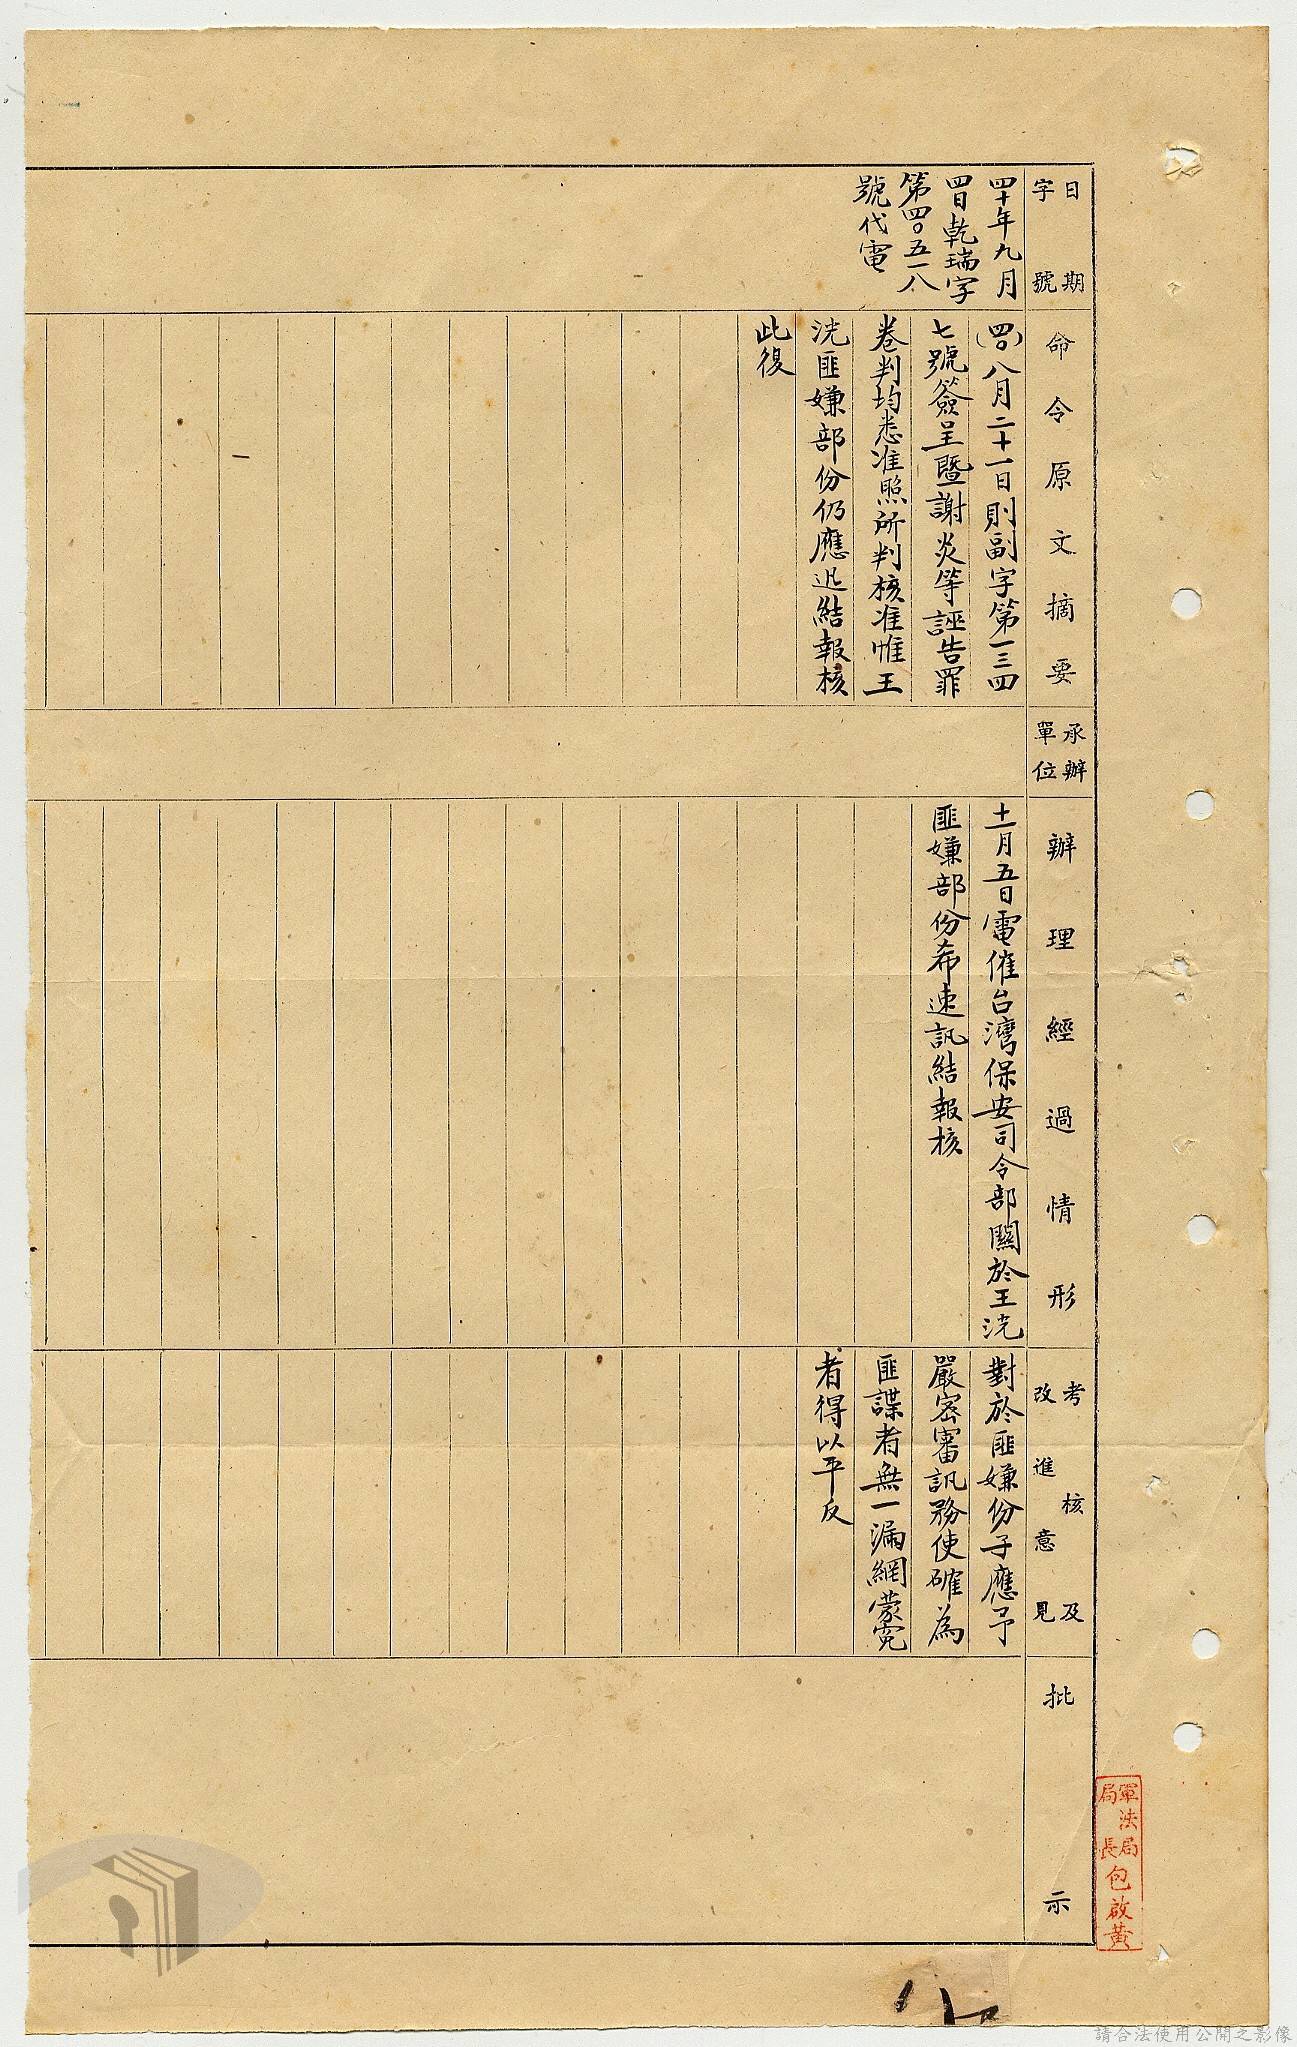 日期
字號
四十年九月
四日乾瑞字
第四〇五一八
號代電
命令原文摘要
(四〇)八月二十一日則副字第一三四
七號簽呈暨謝炎等誣告罪
卷判均悉准照所判核准惟王
洸匪嫌部份仍應迅結報核
此復
承辦
單位
辦理經過情形
十一月五日電催台灣保安司令部關於王洸
匪嫌部份希速訊結報核
考核及
改進意見
對於匪嫌份子應予
嚴密審訊務使確為
匪諜者無一漏網蒙冤
者得以平反
批示
軍法局
局長
包啟黃
請合法使用公開之影像